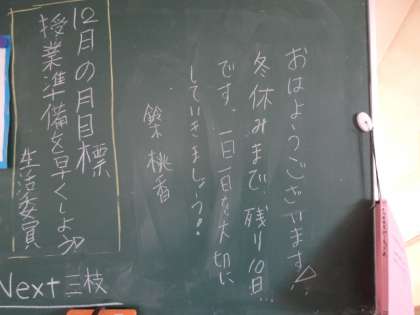 おはようございます!
冬休みまで、残り10日
です。一日一日を大切に
していきましょう!
鈴木 桃香
12月の月目標
授業準備を早くしよう
生活委員
Next 三枝